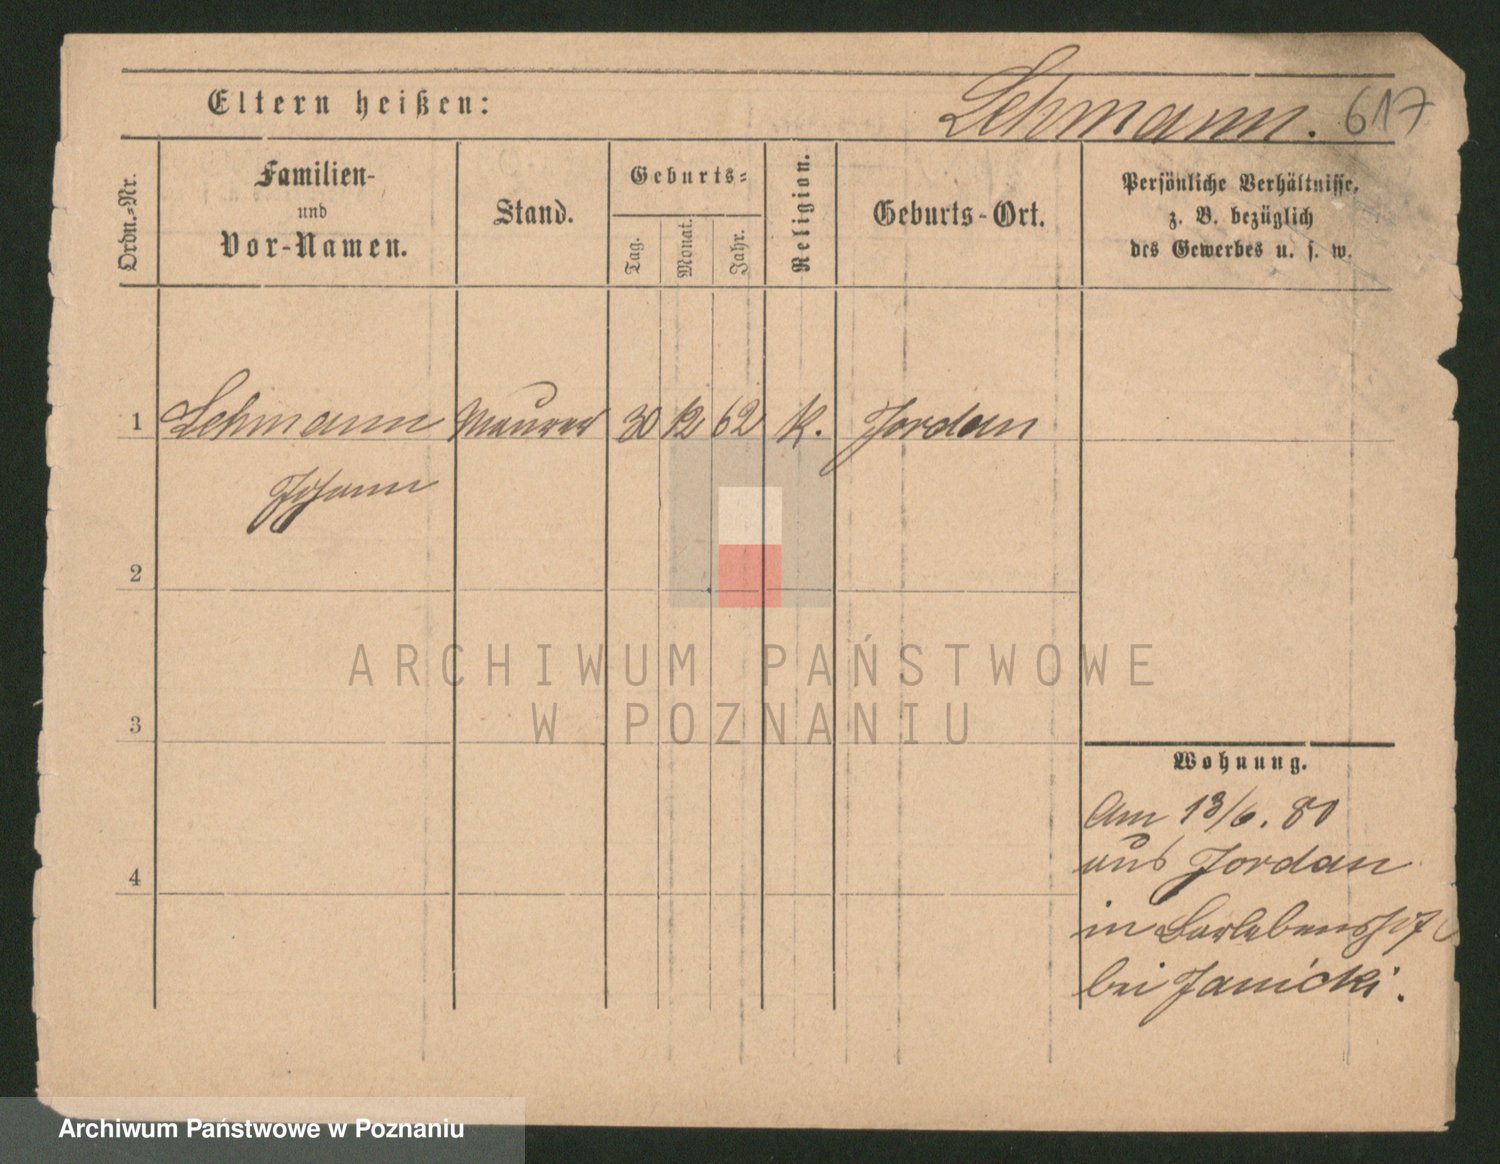 Eltern heißen:
Lehmann. 617
Ordn.-Nr.
Familien-
und
Vor-Namen.
Stand.
Geburts-
Tag.
Monat.
Jahr.
Religion.
Geburts-Ort.
Persönliche Verhältnisse,
z. B. bezüglich
des Gewerbes u. s. w.
1 Lehmann Maurer 30 12 62 K. Jordan
Johann
2
3
4
Wohnung.
Am 13/6. 80
aus Jordan
in
bei Janicki.
ARCHIWUM PAŃSTWOWE
W POZNANIU
Archiwum Państwowe w Poznaniu